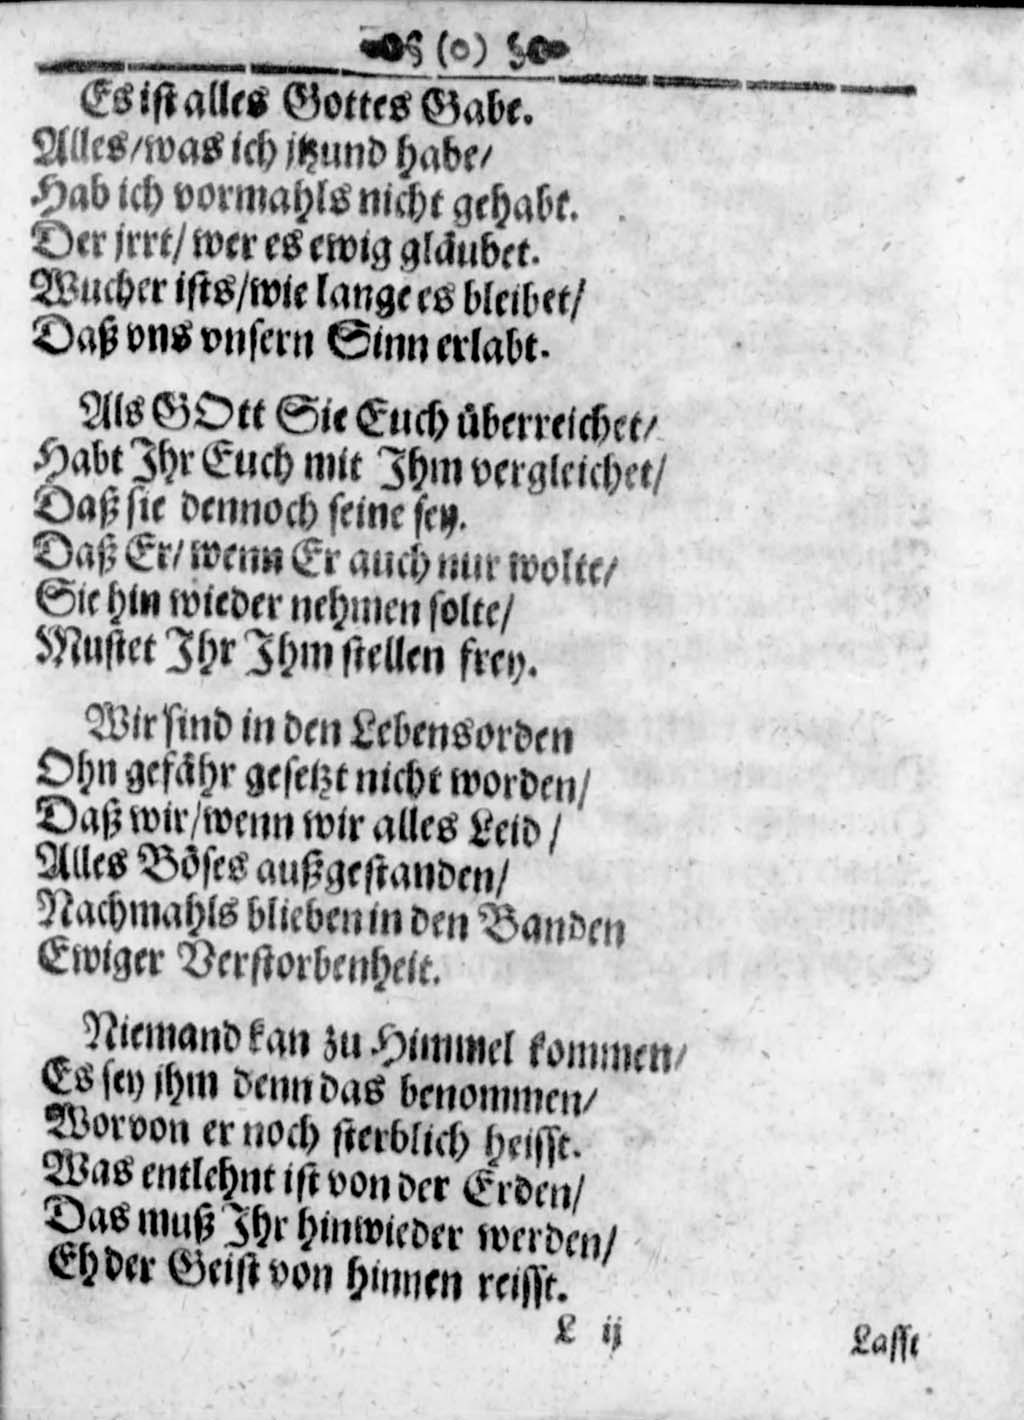 (o)
Es ist alles Gottes Gabe.
Alles/was ich jtzund habe/
Hab ich vormahls nicht gehabt.
Der jrrt/ wer es ewig gläubet.
Wucher ists/wie lange es bleibet/
Daß vns vnsern Sinn erlabt.
Als GOtt Sie Euch überreichet/
Habt Jhr Euch mit Jhm vergleichet/
Daß sie dennoch seine sey.
Daß Er/ wenn Er auch nur wolte/
Sie hin wieder nehmen solte/
Mustet Jhr Jhm stellen frey.
Wir sind in den Lebensorden
Ohn gefähr gesetzt nicht worden/
Daß wir/wenn wir alles Leid /
Alles Böses außgestanden/
Nachmahls blieben in den Banden
Ewiger Verstorbenheit.
Niemand kan zu Himmel kommen/
Es sey jhm denn das benommen/
Worvon er noch sterblich heisst.
Was entlehnt ist von der Erden/
Das muß Jhr hinwieder werden/
Eh der Geist von hinnen reisst.
L ij
Lasst